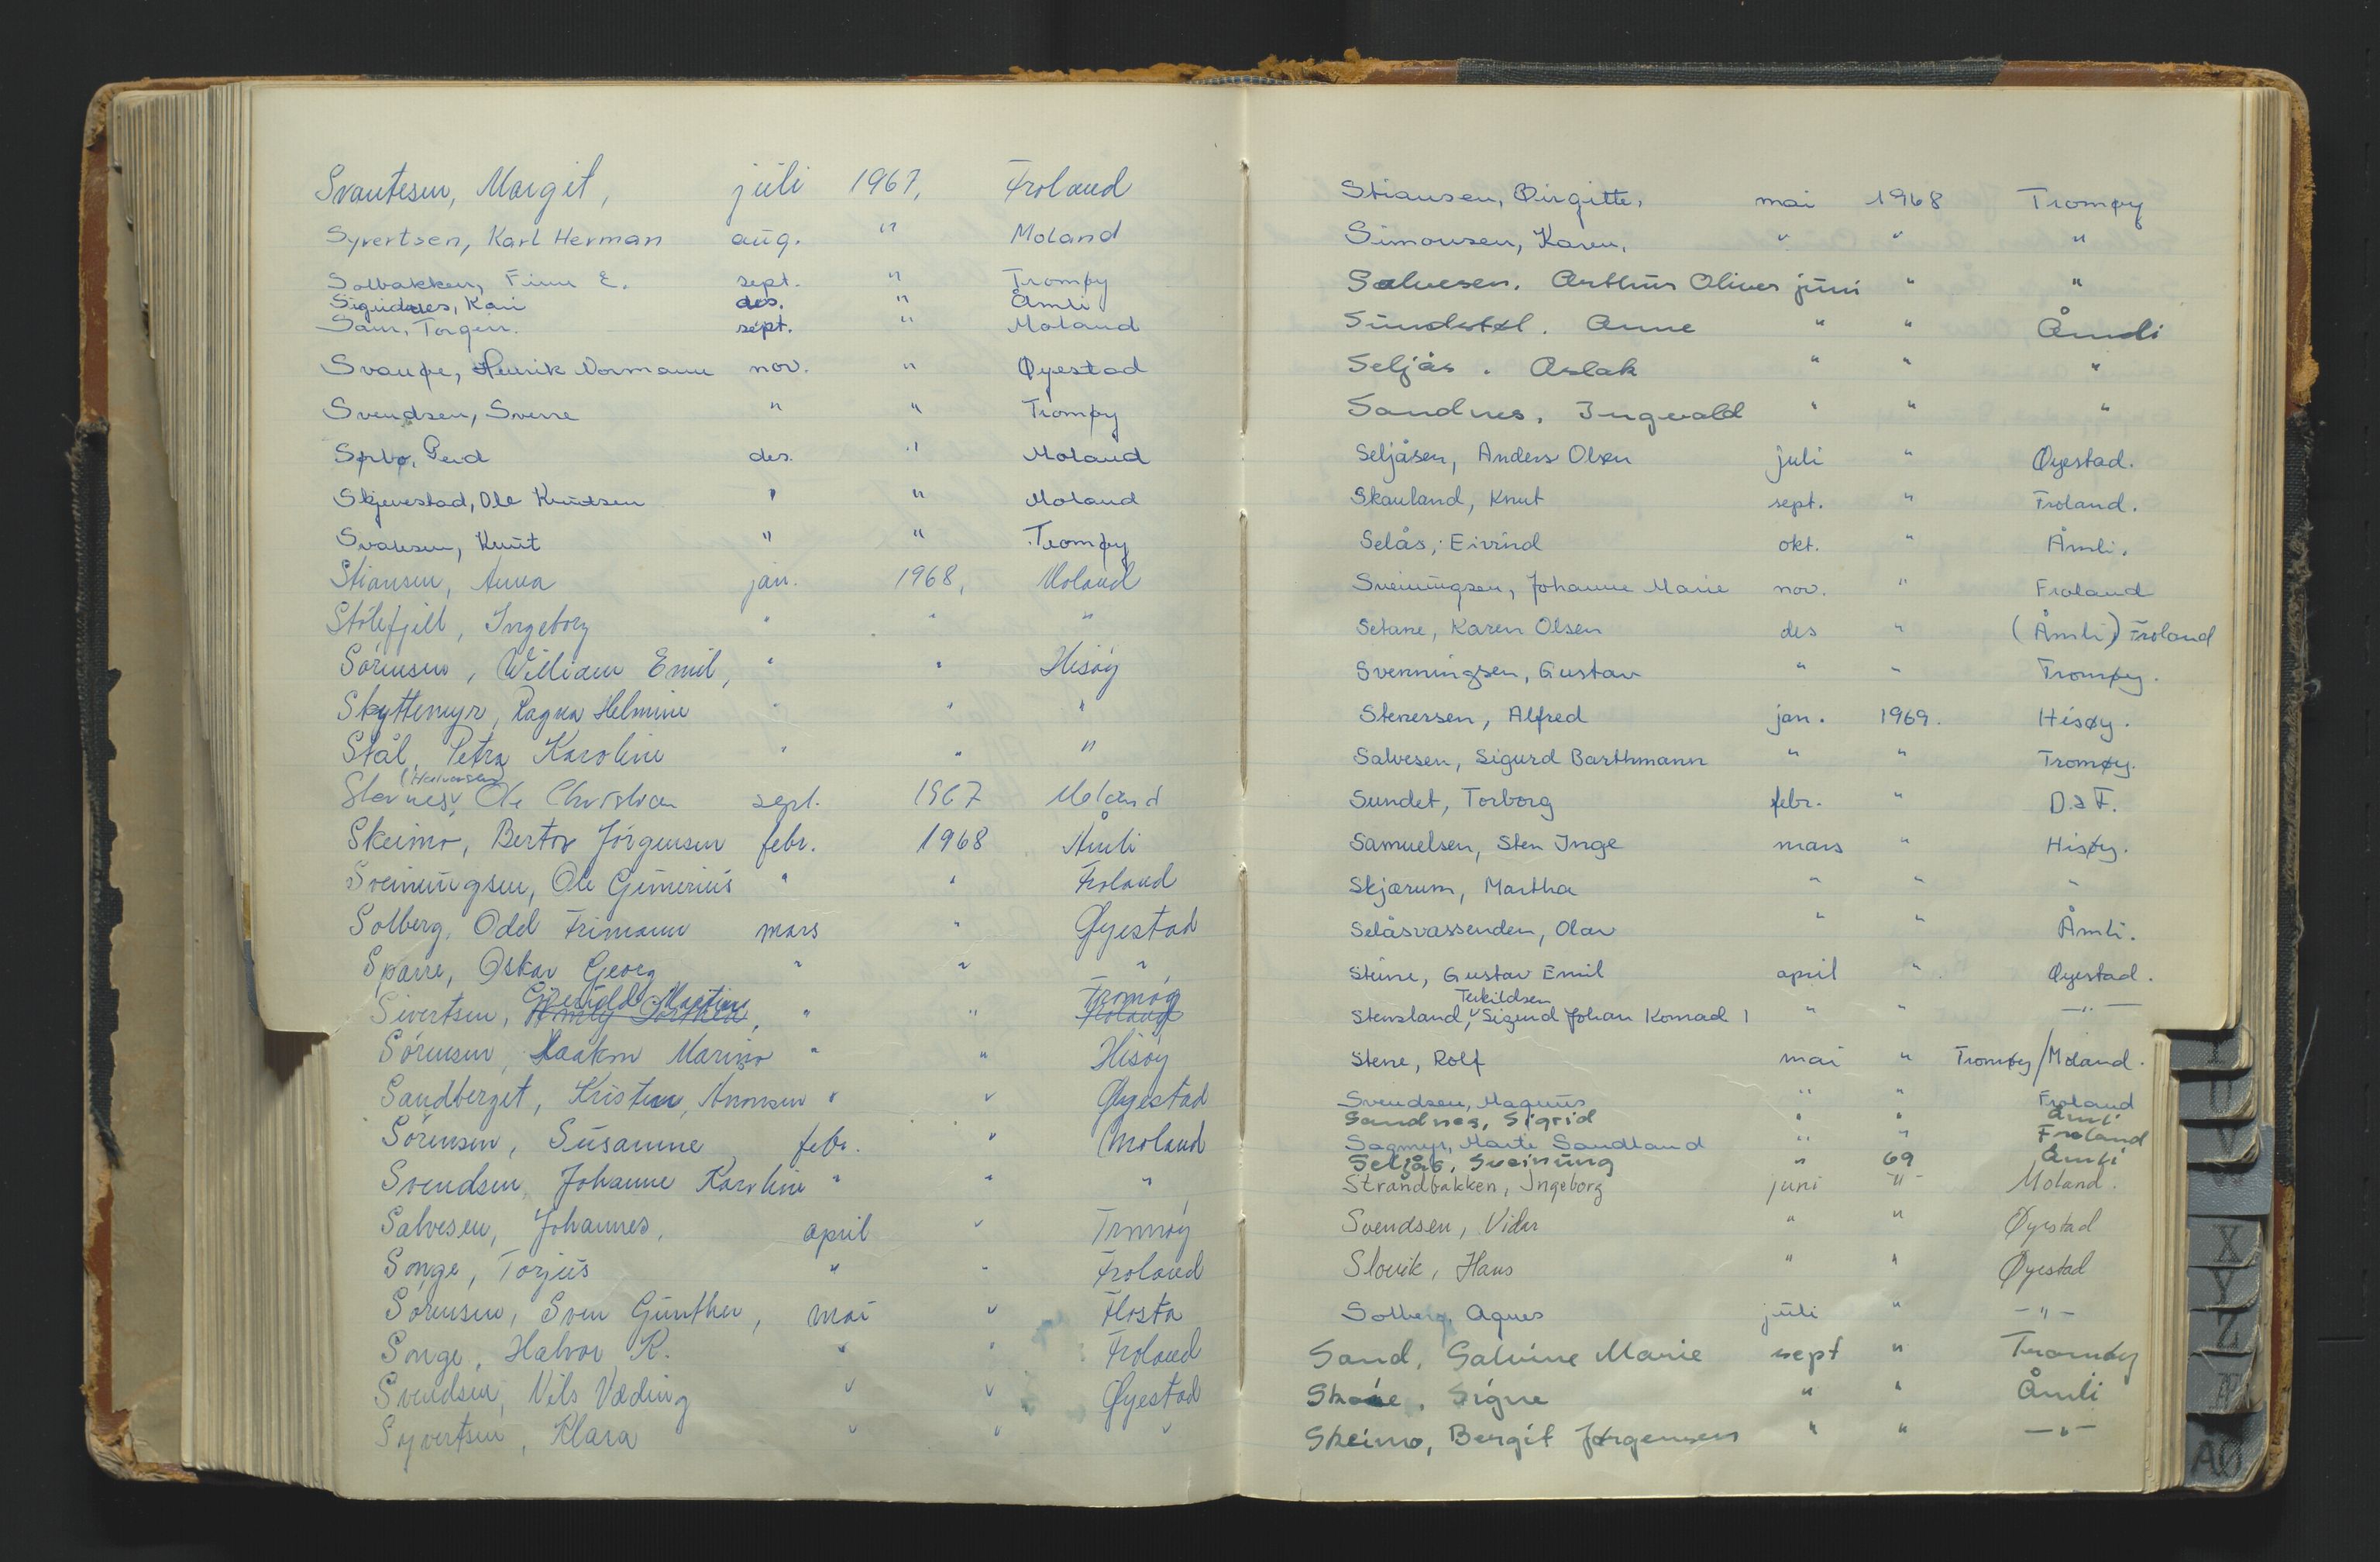 Svantesen, Margit, juli 1967, Froland
Syvertsen, Karl Herman aug. " Moland
Solbakken, Finn E. sept. " Tromøy
Sigridnes, Kari des. " Åmli
Sam, Torgeir. sept. " Moland
Svaupe, Henrik Normann nov. " Øyestad
Svendsen, Sverre " " Tromøy
Sørbø, Peid des. " Moland
Skjevestad, Ole Knutsen " " Moland
Svaksen, Knut " " Tromøy
Stiansen, Anna jan. 1968, Moland
Stölefjell, Ingeborg " " "
Sörensen, William Emil, " " Hisöy
Skyttemyr, Ragna Helmine " " "
Stål, Petra Karoline " " "
(Halvorsen)
Slavnes, Ole Christian sept. 1967 Moland
Skeimo, Bertor Jörgensen febr. 1968 Åmli
Sveinungsen, Ole Gunerius " " Froland
Solberg, Odd Frimann mars " Øyestad
Sparre, Oskar Georg " " "
Gunvald Martin Tromöy
Sivertsen, " " Froland
Sörensen, Haakon Marino " " Hisöy
Sandberget, Kristen Aanonsen " " Øyestad
Sörensen, Susanne febr. " Moland
Svendsen, Johanne Karoline " " "
Salvesen, Johannes, april " Tromöy
Songe, Torjus " " Froland
Sörensen, Sven Gunther, mai " Flosta
Songe, Halvor R. " " Froland
Svendsen, Nils Væding " " Øyestad
Syvertsen, Klara " " "
Stiansen, Birgitte, mai 1968 Tromøy
Simonsen, Karen, " " "
Salvesen, Arthur Oliver juni " "
Sundstøl, Anne " " Åmli
Seljås, Aslak " " "
Sandnes, Ingvald " " "
Seljåsen, Anders Olsen juli " Øyestad.
Skauland, Knut sept. " Froland.
Selås, Eivind okt. " Åmli.
Sveinungsen, Johanne Marie nov. " Froland
Setane, Karen Olsen des " (Åmli) Froland
Svenningsen, Gustav " " Tromøy.
Stenersen, Alfred jan. 1969. Hisøy.
Salvesen, Sigurd Barthmann " " Tromøy.
Sundet, Torborg febr. " D.s F.
Samuelsen, Sten Inge mars " Hisøy.
Skjærum, Martha " " "
Selåsvassenden, Olav " " Åmli.
Steine, Gustav Emil april " Øyestad.
Terkildsen
Stensland, Sigurd Johan Konrad " " —"—
Stene, Rolf mai " Tromøy/Moland.
Svendsen, Magnus " " Froland
Sandnes, Sigrid " " Åmli
Sagmyr, Marte Sandland " " Froland
Seljås, Sveinung " 69 Åmli
Strandbakken, Ingeborg juni " Moland.
Svendsen, Vidar " " Øyestad
Slovik, Hans " " Øyestad
Solberg, Agnes juli " —"—
Sand, Galvine Marie sept " Tromøy
Skåre, Signe " " Åmli
Skeimo, Bergit Jørgensen " " —"—
U
V
X
Y
Z
Æ
AØ